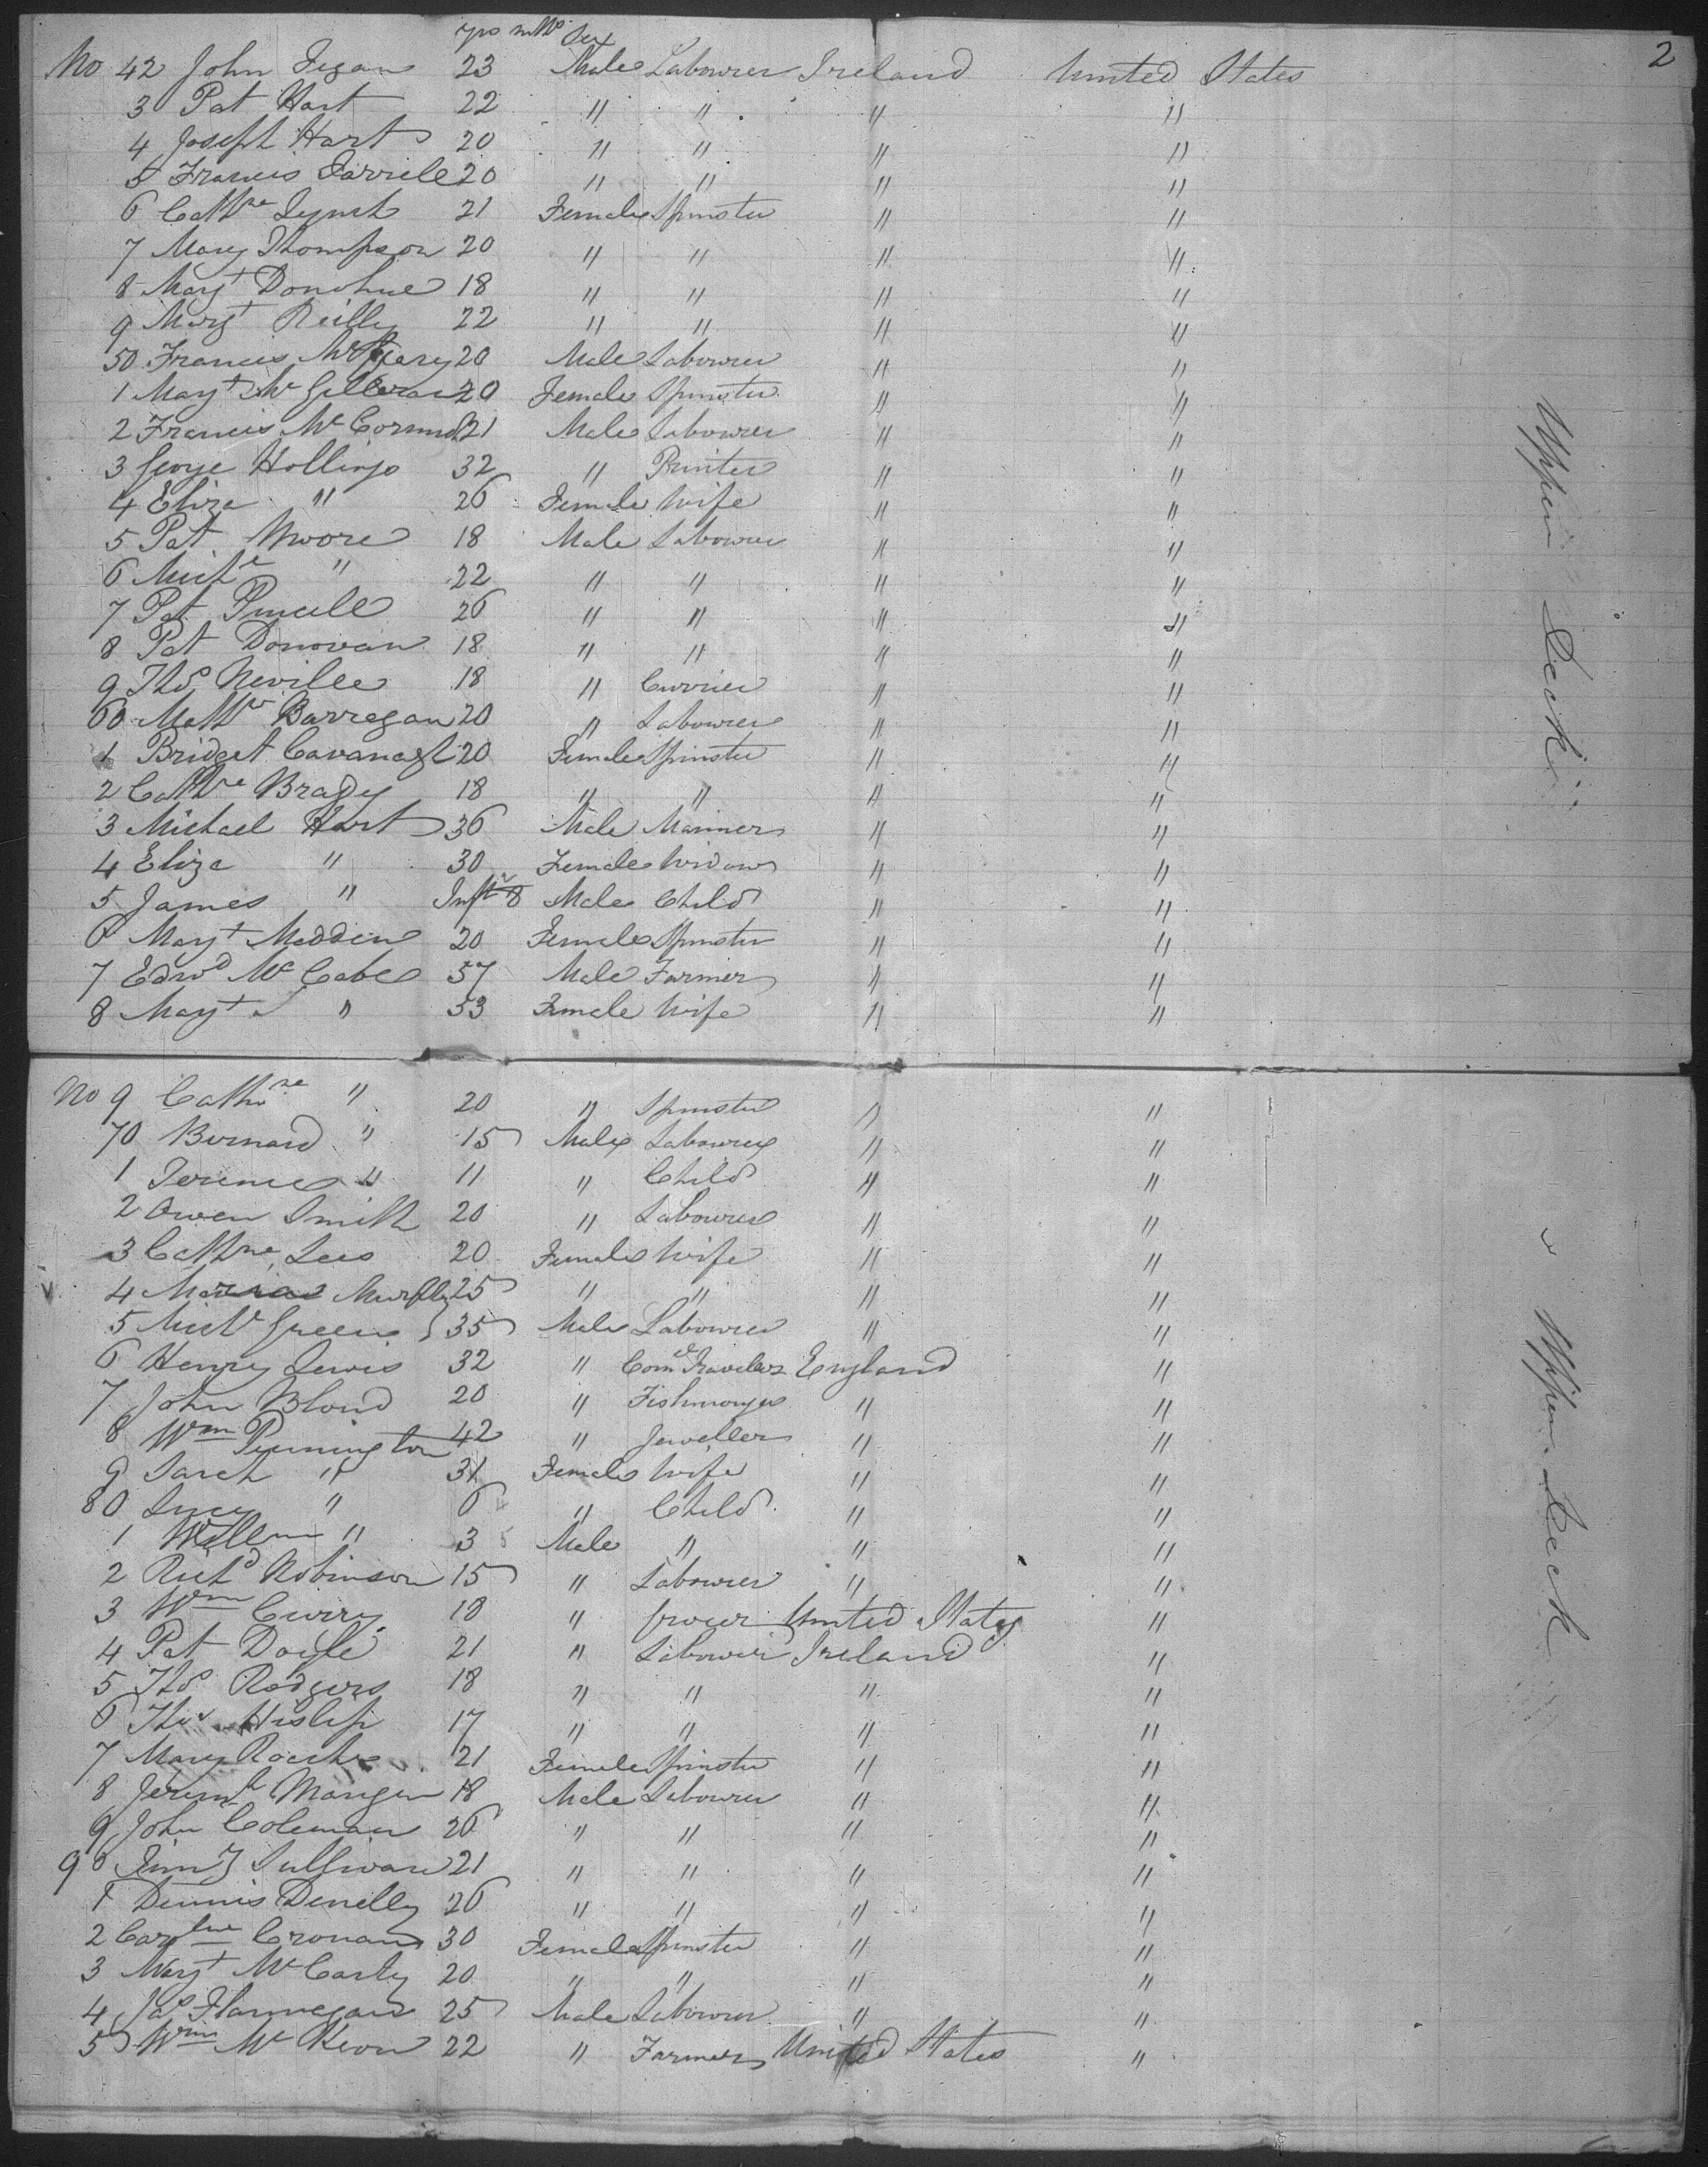 2
yrs mths Sex
No 42 John Fegan 23 Male Labourer Ireland United States
3 Pat Hart 22 " " " "
4 Joseph Hart 20 " " " "
5 Francis Farrell 20 " " " "
6 Cathne Lynch 21 Female Spinster " "
7 Mary Thompson 20 " " " "
8 Margt Donohue 18 " " " "
9 Margt Reilly 22 " " " "
50 Francis 20 Male Labourer " "
1 Margt 20 Female Spinster " "
2 Francis Mc Cormick 21 Male Labourer " "
3 George Hollings 32 " Printer " "
4 Eliza " 26 Female Wife " "
5 Pat Moore 18 Male Labourer " "
6 Michl " 22 " " " "
7 Pat Purcell 26 " " " "
8 Pat Donovan 18 " " " "
9 Thos Neville 18 " Currier " "
60 Mattw Barregan 20 " Labourer " "
1 Bridget Cavanagh 20 Female Spinster " "
2 Cathne Brady 18 " " " "
3 Michael Hart 36 Male Mariner " "
4 Eliza " 30 Female Widow " "
5 James " Inft 8 Male Child " "
6 Margt Madden 20 Female Spinster " "
7 Edwd Mc Cabe 57 Male Farmer " "
8 Margt " 53 Female Wife " "
Upper Deck
No 9 Cathne " 20 " Spinster " "
70 Bernard " 15 Male Labourer " "
1 Terence " 11 " Child " "
2 Owen Smith 20 " Labourer " "
3 Cathne Lees 20 Female Wife " "
4 Maria Murphy 25 " " " "
5 Michl Green 35 Male Labourer " "
6 Henry Lewis 32 " Coml Traveler England "
7 John Blond 20 " Fishmonger " "
8 Wm Pennington 42 " Jeweller " "
9 Sarah " 31 Female Wife " "
80 Lucy " 6 " Child " "
1 Willm " 3 Male " " "
2 Richd Robinson 15 " Labourer " "
3 Wm Curry 18 " Grocer United States "
4 Pat Doyle 21 " Labourer Ireland "
5 Thos Rodgers 18 " " " "
6 Thos Hislip 17 " " " "
7 Mary Roache 21 Female Spinster " "
8 Jeremh Mangan 18 Male Labourer " "
9 John Coleman 26 " " " "
90 Timy Sullivan 21 " " " "
1 Dennis Denelly 26 " " " "
2 Carline Cronan 30 Female Spinster " "
3 Margt Mc Carty 20 " " " "
4 Jas Flannegan 25 Male Labourer " "
5 Wm Mc Keon 22 " Farmer United States "
" Upper Deck